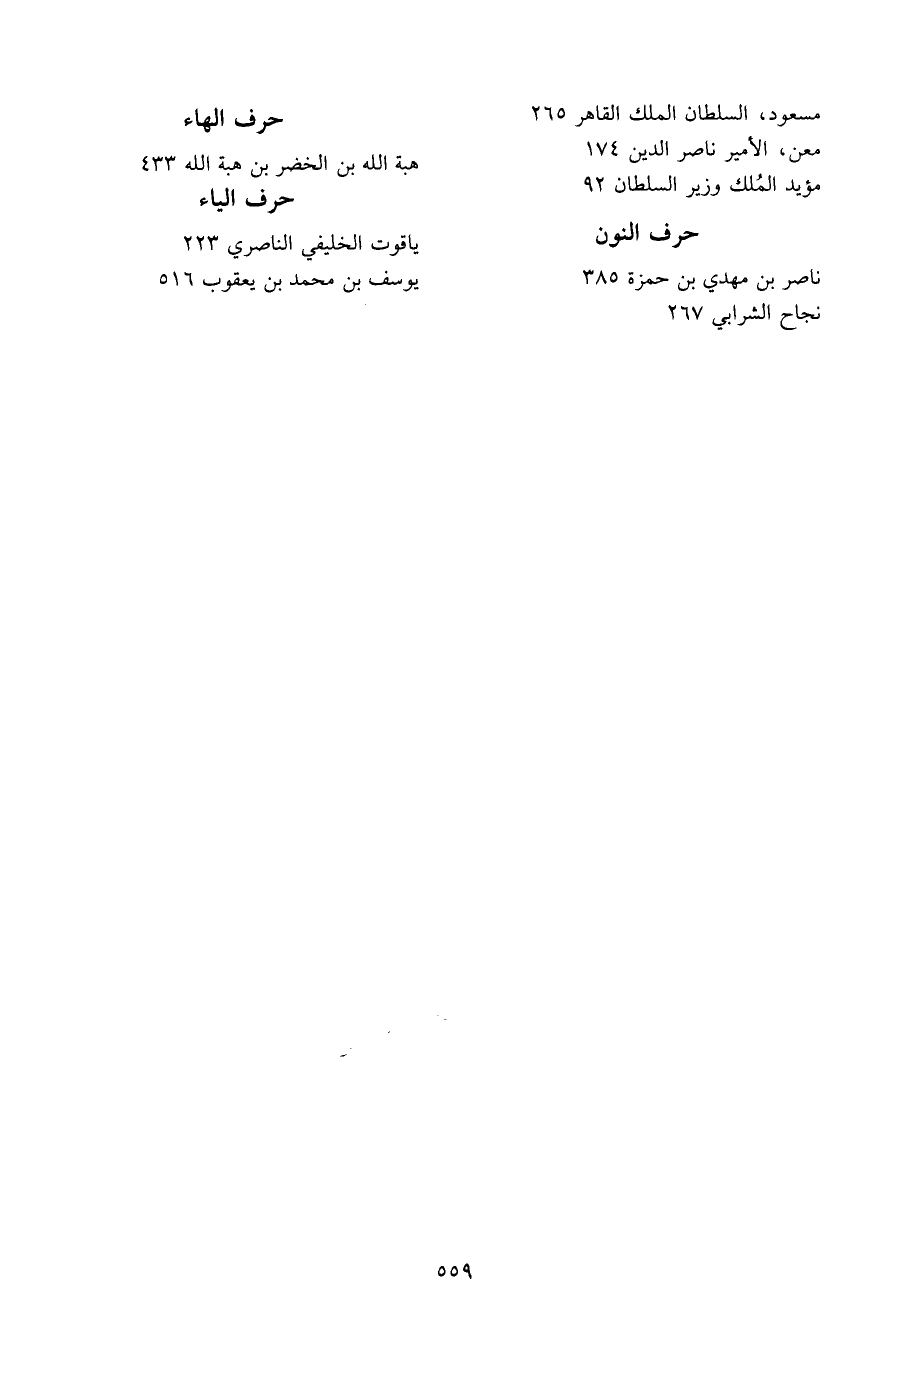 مسعود، السلطان الملك القاهر ٢٦٥
معن، الأمير ناصر الدين ١٧٤
مؤيد المُلك وزير السلطان ٩٢
حرف النون
ناصر بن مهدي بن حمزة ٣٨٥
نجاح الشرابي ٢٦٧
حرف الهاء
هبة الله بن الخضر بن هبة الله ٤٣٣
حرف الياء
ياقوت الخليفي الناصري ٢٢٣
يوسف بن محمد بن يعقوب ٥١٦
٥٥٩